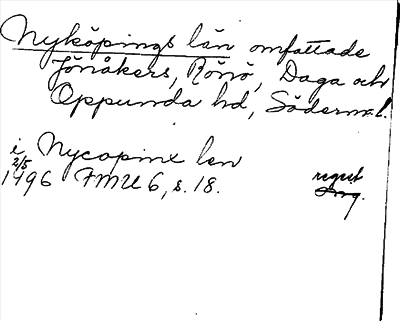 Nyköpings län omfattade
Jönåkers, Rönö, Daga och
Oppunda hd, Söderml.
i Nycopinx len
2/5
1496 FMU 6, s. 18.
regest